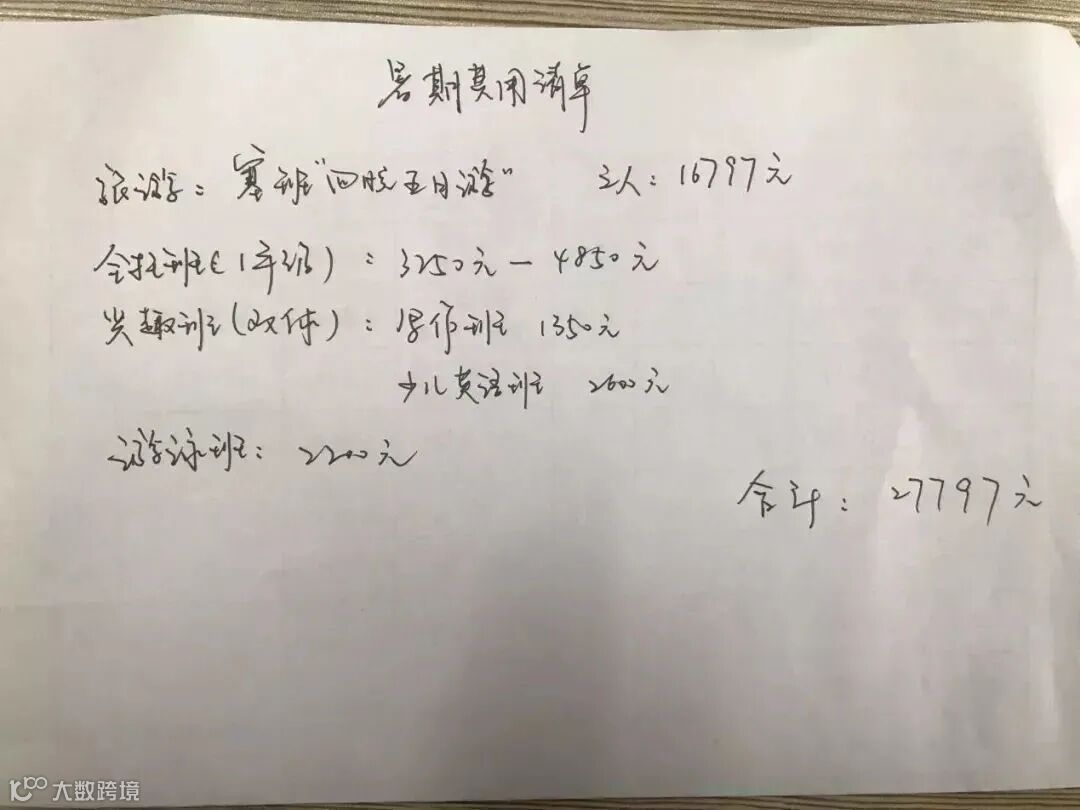 暑期费用清单
旅游：塞班“四晚五日游” 三人：16797元
全托班（1年级）：3250元－4850元
兴趣班（双休）：写作班 1350元
少儿英语班 2600元
游泳班：2200元
合计：27797元
大数跨境